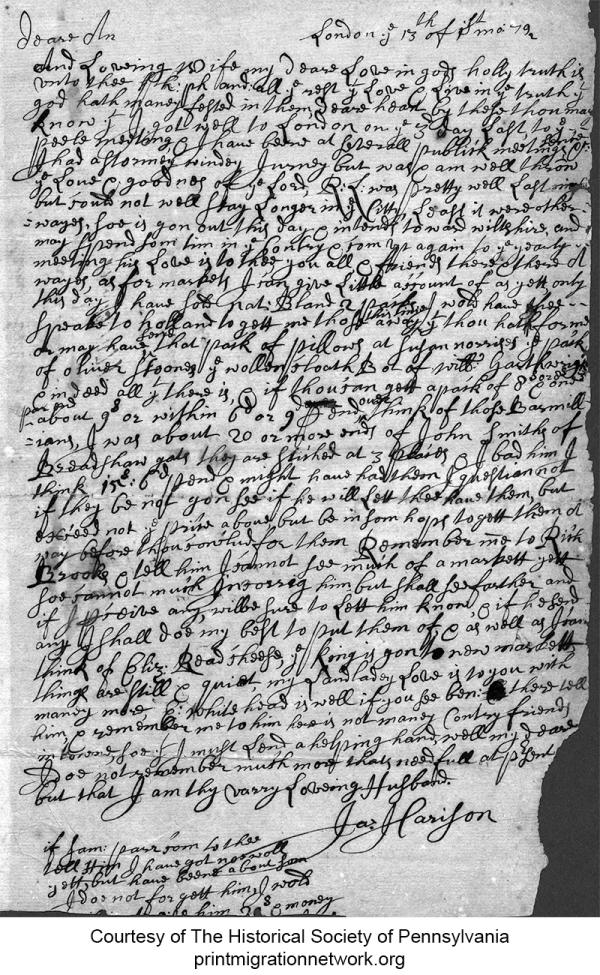 Deare An London ye 13th of 1st mo: 79/2
And Loveing Wife my Deare Love in gods holly truth is
vnto thee and all ye rest yt Love & Live in ye truth yt
god hath manefested in them, deare heart by these thou may
know yt I got well to London on ye 3d day Last to ye
peele meeting & I have beene at severall publick meetings
I had a stormey windey Jurney but was & am well throw
ye Love & goodnes of ye Lord, R: L: was pretty well Last
but could not well stay Longer in ye Citty Least it were other
wayes, soe is gon out this day & intends toward wiltshire, and
may spend som tim in ye Contry & com vp again to ye yearly
meeting his Love is to thee you all & friends there & there a
wayes, as for markets I can give Little account of as yett only
this day I have sold nat: Bland 2 packs I wold have thee
speake to holland to gett me those yt thou hath for me
or may have send that pack of pillows at Susan norrises ye pack
of oliver Stoones ye wollen Cloath Bot of will
& indeed all yt there is, & if thou can gett a pack of
about 9s or within 6d or 9d send over think of those Barmill
rans, I was about 20 or more ends of John Smiths of
Breadshaw gats they are stiched at 3 places I bad him I
think 15s: 6d pend & might have had them I question not
if they be not gon see if he will Lett thee have them, but
exceed not ye price above but be in som hops to gett them a
way before thou conclud for them Remember me to Rich
Brooks & tell him I cannot see much of a markett yett
soe cannot much Incorrig him but shall see farther and
if I perceive any, wilbe sure to Lett him know, & if he send
any I shall doe my best to put them of, & as well as I can
think of Eliz: Read cheese, ye King is gon to new markett
things are still & quiet my Landladey Love is to you with
maney more E: white head is well if you see ben: there tell
him & remember me to him here is not maney Contry friends
in towne soe if I might Lend a helping hand, well my deare
I doe not remember much more thats needfull at present
but that I am thy varry Loveing Husband.
Ja: Harison
if Sam: parr com to thee
tell Him I have got no wooll
yett, but have beene about som
I doe not forgett him, I wold
him 20s money
Courtesy of The Historical Society of Pennsylvania
printmigrationnetwork.org